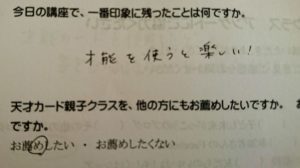 今日の講座で、一番印象に残ったことは何ですか。
才能を使うと楽しい！
天才カード親子クラスを、他の方にもお薦めしたいですか。
ですか。
お薦めしたい ・ お薦めしたくない